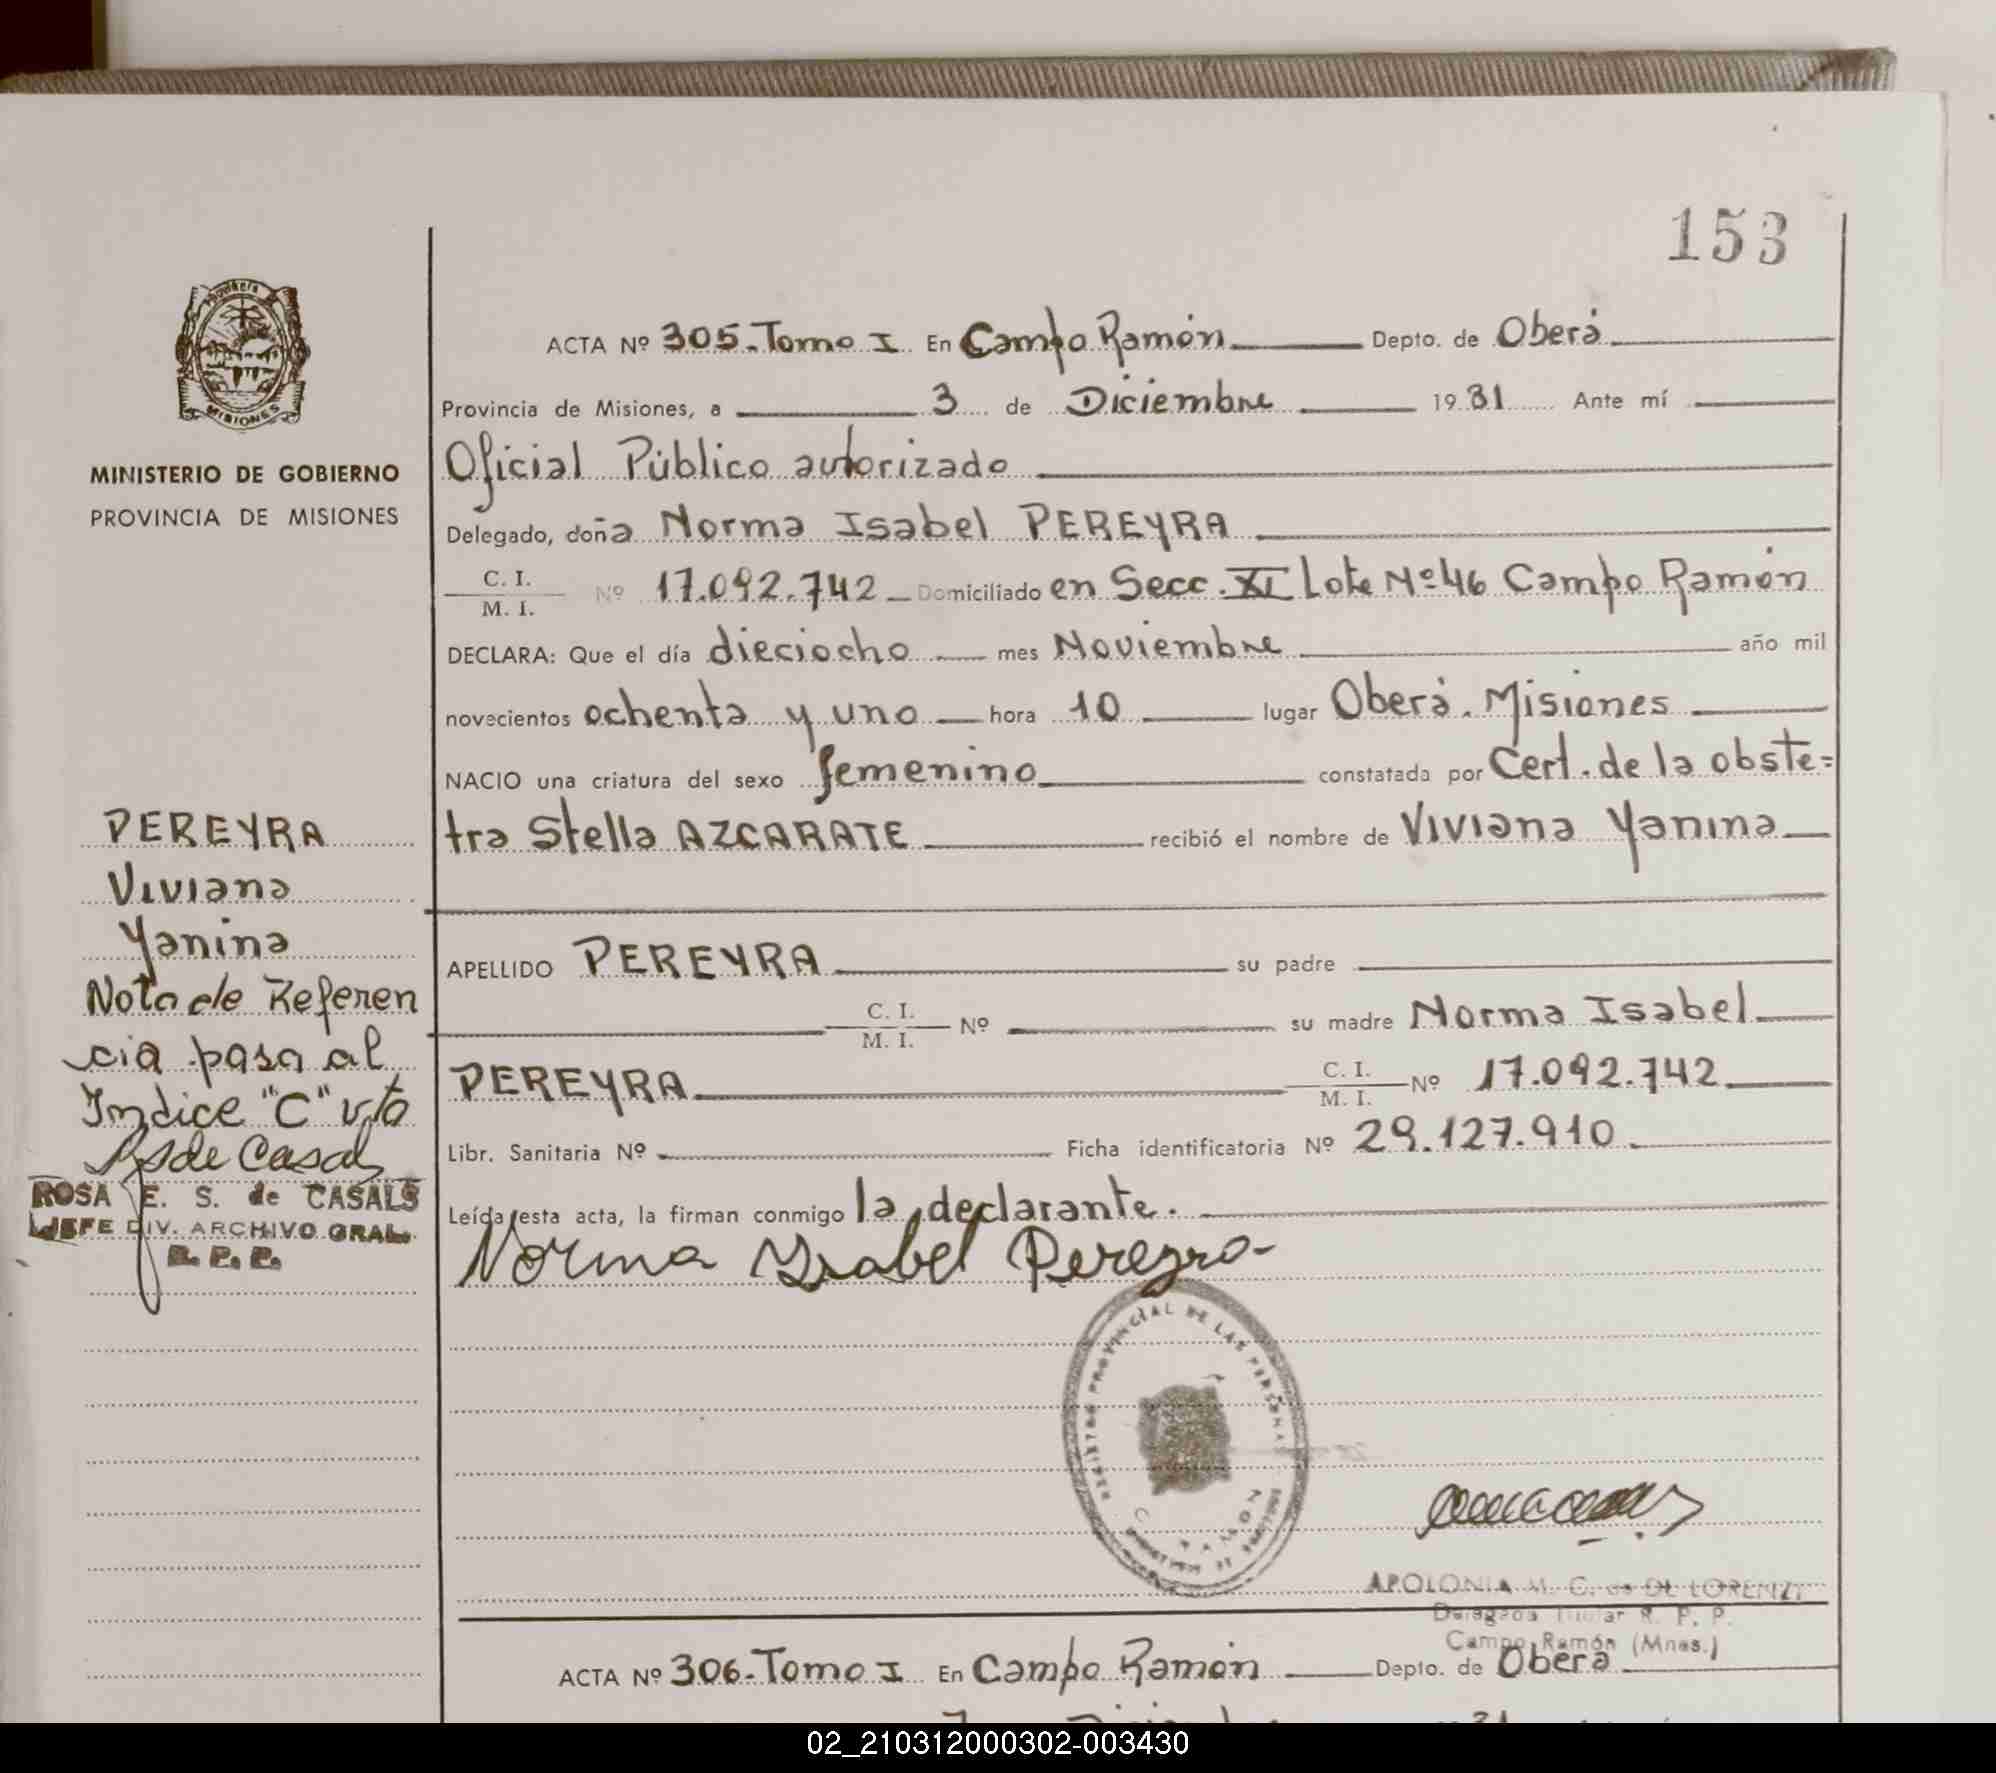 153
PROVINCIA
MISIONES
MINISTERIO DE GOBIERNO
PROVINCIA DE MISIONES
ACTA Nº 305. Tomo I En Campo Ramón Depto. de Oberá
Provincia de Misiones, a 3 de Diciembre 1981 Ante mí
Oficial Público autorizado
Delegado, doña Norma Isabel PEREYRA
C. I.
M. I. Nº 17.092.742 Domiciliado en Secc. XI Lote Nº 46 Campo Ramón
DECLARA: Que el día dieciocho mes Noviembre año mil
novecientos ochenta y uno hora 10 lugar Oberá. Misiones
NACIO una criatura del sexo femenino constatada por Cert. de la obste=
tra Stella AZCARATE recibió el nombre de Viviana Yanina
APELLIDO PEREYRA su padre
C. I.
M. I. Nº su madre Norma Isabel
PEREYRA C. I.
M. I. Nº 17.092.742
Libr. Sanitaria Nº Ficha identificatoria Nº 29.127.910
Leída esta acta, la firman conmigo la declarante.
Norma Isabel Pereyra
PEREYRA
Viviana
Yanina
Nota de Referen
cia pasa al
Indice "C" vto
RSde Casals
ROSA E. S. de CASALS
JEFE DIV. ARCHIVO GRAL.
R. P. P.
REGISTRO PROVINCIAL DE LAS PERSONAS
APOLONIA M. C. de DE LORENZI
Delegada Titular R. P. P.
Campo Ramón (Mnes.)
ACTA Nº 306. Tomo I En Campo Ramón Depto. de Oberá
02_210312000302-003430